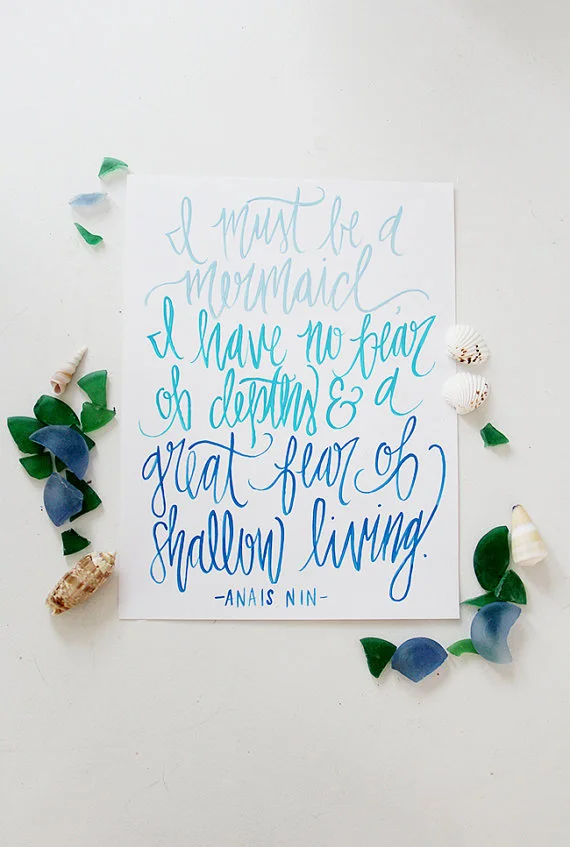 I must be a
mermaid,
I have no fear
of depths & a
great fear of
shallow living.
-ANAIS NIN-